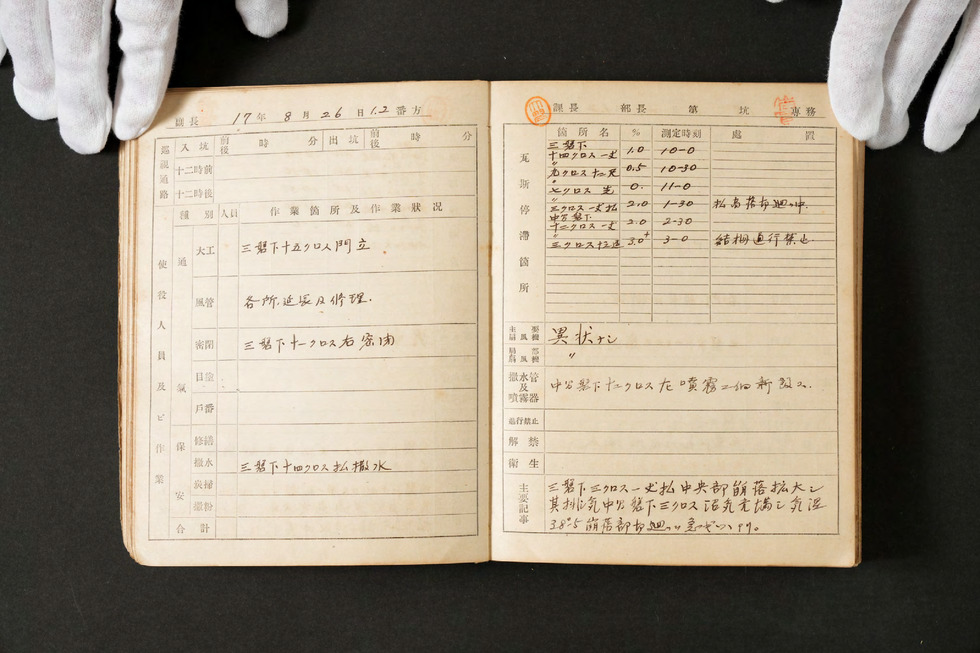 係長 17年 8月 26日 1.2番方
巡視通路 入坑 前後 時 分 出坑 前後 時 分
十二時前
十二時後
使役人員及ビ作業
種別 人員 作業箇所及作業状況
通気
大工 三盤下十五クロス門立
風管 各所延長及修理.
密閉 三盤下十一クロス右密閉
目塗
戸番
保安
修繕
撒水 三盤下十四クロス払撒水
炭掃
撒粉
合計
課長 部長 第 坑 専務
瓦斯停滞箇所
箇所名 % 測定時刻 処置
三盤下
十四クロス一丈 1.0 10-0
〃
九クロス 0.5 10-30
〃
七クロス 0. 11-0
〃
三クロス一丈払 2.0 1-30
中公盤下
十二クロス一丈 2.0 2-30
〃
三クロス 3.0+ 3-0 通行禁止
主要扇風機 異状ナシ
局部扇風機 〃
撒水管及噴霧器 中公盤下十二クロス左噴霧二個新設ス.
通行禁止
解禁
衛生
主要記事
三盤下三クロス一丈払中央部崩落拡大シ
其排気中公盤下三クロス沿充満シ気温
38°5崩落部